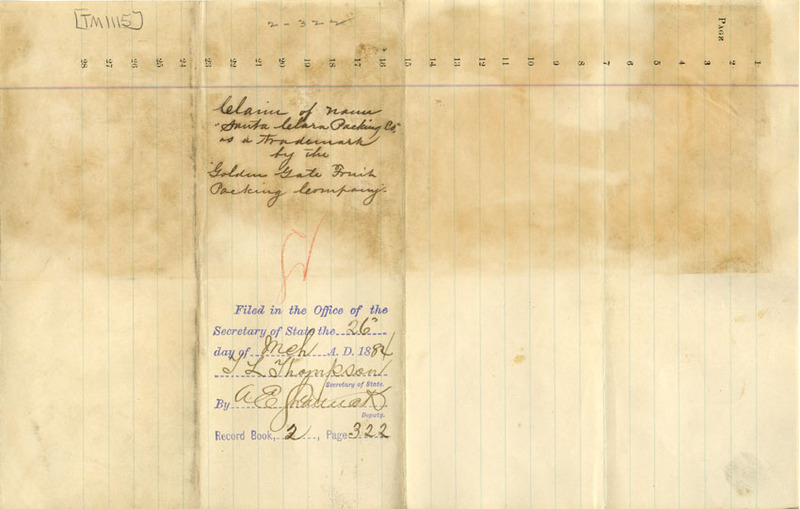 [TM1115]
2-322
PAGE
1
2
3
4
5
6
7
8
9
10
11
12
13
14
15
16
17
18
19
20
21
22
23
24
25
26
27
28
Claim of name
"Santa Clara Packing Co"
as a Trademark
by the
Golden Gate Fruit
Packing Company.
Filed in the Office of the
Secretary of State the 26"
day of Mch A. D. 1884
T L Thompson
Secretary of State.
By A E
Deputy.
Record Book, 2, Page 322